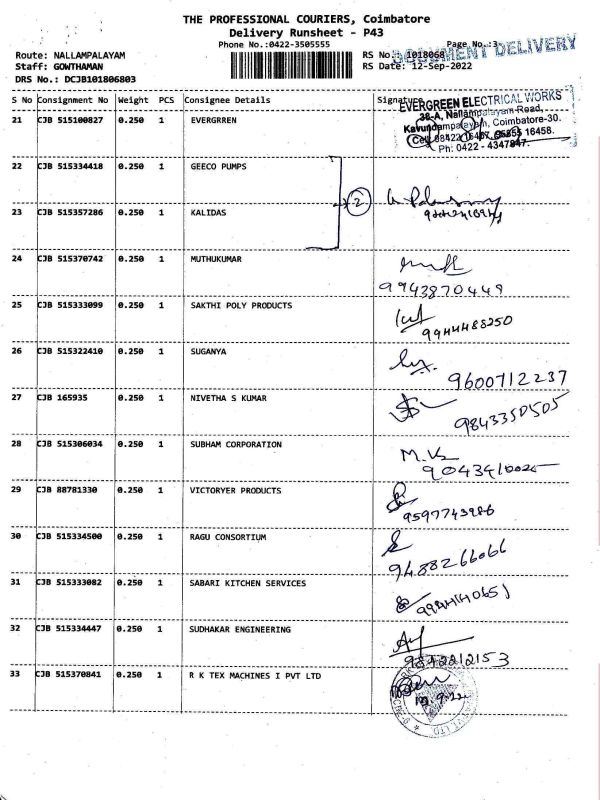 THE PROFESSIONAL COURIERS, Coimbatore
Delivery Runsheet - P43
Phone No.:0422-3505555
Page No.:3
Route: NALLAMPALAYAM
RS No.: 1018068
DOCUMENT DELIVERY
Staff: GOWTHAMAN
RS Date: 12-Sep-2022
DRS No.: DCJB101806803
S No Consignment No Weight PCS Consignee Details Signature
21 CJB 515100827 0.250 1 EVERGRREN
EVERGREEN ELECTRICAL WORKS
38-A, Nallampalayam Road,
Kavundampalayam, Coimbatore-30.
16458.
Ph: 0422 - 4347847.
22 CJB 515334418 0.250 1 GEECO PUMPS
2
23 CJB 515357286 0.250 1 KALIDAS
24 CJB 515370742 0.250 1 MUTHUKUMAR
9943870449
25 CJB 515333099 0.250 1 SAKTHI POLY PRODUCTS
9944488250
26 CJB 515322410 0.250 1 SUGANYA
9600712237
27 CJB 165935 0.250 1 NIVETHA S KUMAR
9843350505
28 CJB 515306034 0.250 1 SUBHAM CORPORATION
29 CJB 88781330 0.250 1 VICTORYER PRODUCTS
9597743986
30 CJB 515334500 0.250 1 RAGU CONSORTIUM
9488266066
31 CJB 515333082 0.250 1 SABARI KITCHEN SERVICES
32 CJB 515334447 0.250 1 SUDHAKAR ENGINEERING
9842212153
33 CJB 515370841 0.250 1 R K TEX MACHINES I PVT LTD